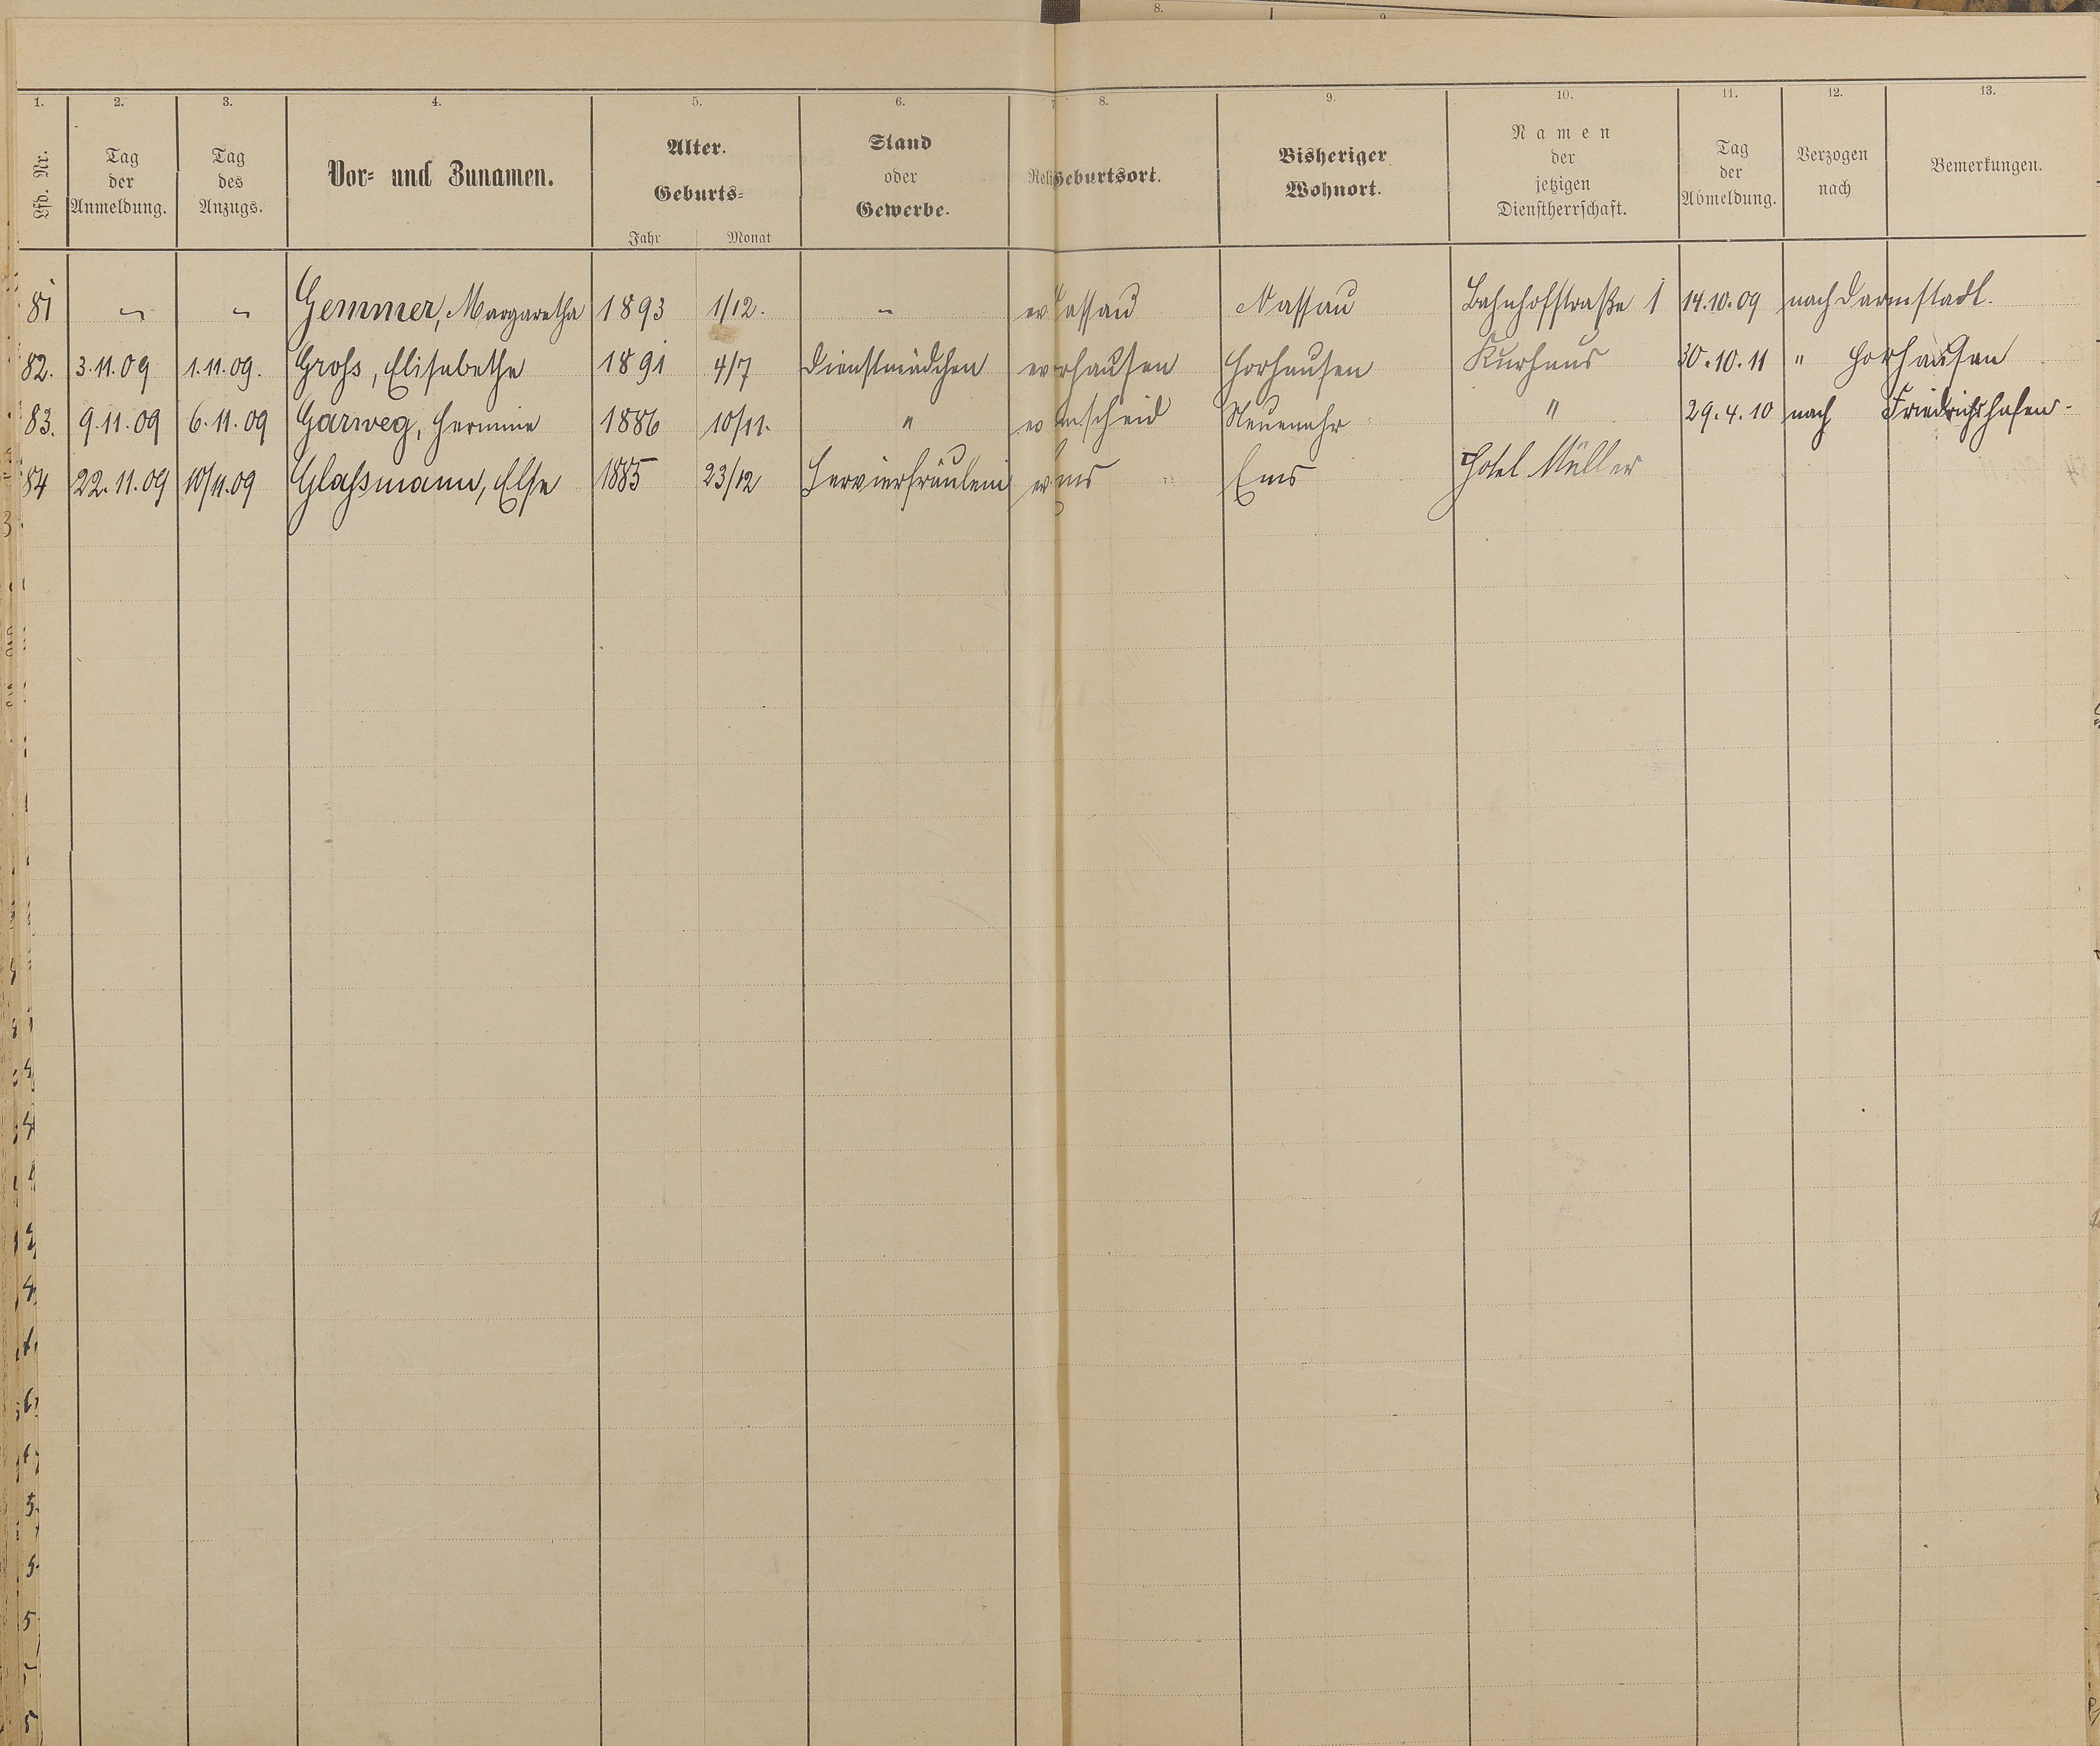 8.
9.
1. 2. 3. 4. 5. 6. 7 8. 9. 10. 11. 12. 13.
Lfd. Nr. Tag der Anmeldung. Tag des Anzugs. Vor- und Zunamen. Alter. Geburts- Jahr Monat Stand oder Gewerbe. Reli Geburtsort. Bisheriger Wohnort. Namen der jetzigen Dienstherrschaft. Tag der Abmeldung. Verzogen nach Bemerkungen.
81 " " Gemmer, Margaretha 1893 1/12. " ev assau Nassau Bahnhofstraße 1 14.10.09 nach Darmstadt.
82. 3.11.09 1.11.09. Groß, Elisabethe 1891 4/7 Dienstmädchen ev rhausen Horhausen Kurhaus 30.10.11 " Horhausen
83. 9.11.09 6.11.09 Garweg, Hermine 1886 10/11. " ev mscheid Neuenahr " 29.4.10 nach Friedrichshafen.
84 22.11.09 10/11.09 Glaßmann, Else 1885 23/12 Servierfräulein ev ms Ems Hotel Müller